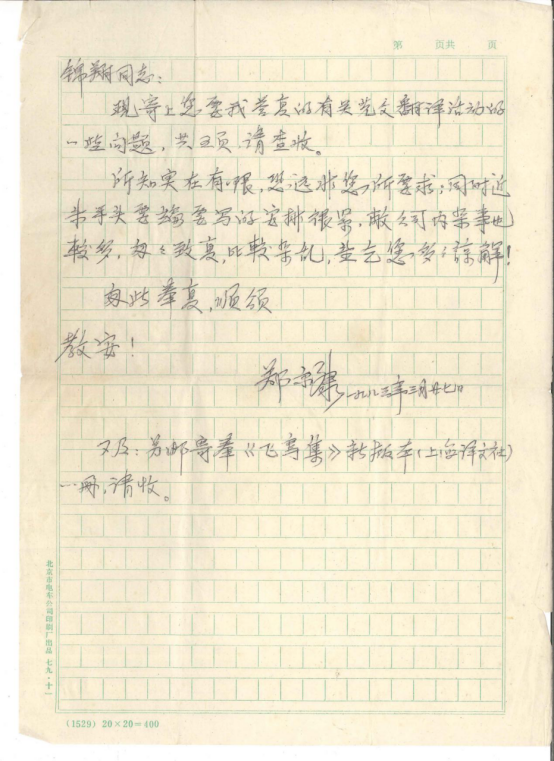 第　页共　页
锦翔同志：
现寄上您要我答复的有关艺文翻译活动的
一些问题，共五页，请查收。
所知实在有限，您远非您所要求；同时近
来手头要编要写的安排很紧，敝公司内杂事也
较多，匆匆致复，比较杂乱，盐乞您多多谅解！
匆此奉复，顺颂
教安！
郑 一九八三年三月廿七日
又及：另邮寄奉《飞鸟集》新版本（上海译文社）
一册，请收。
北京市电车公司印刷厂出品 七九·十一
(1529) 20×20=400